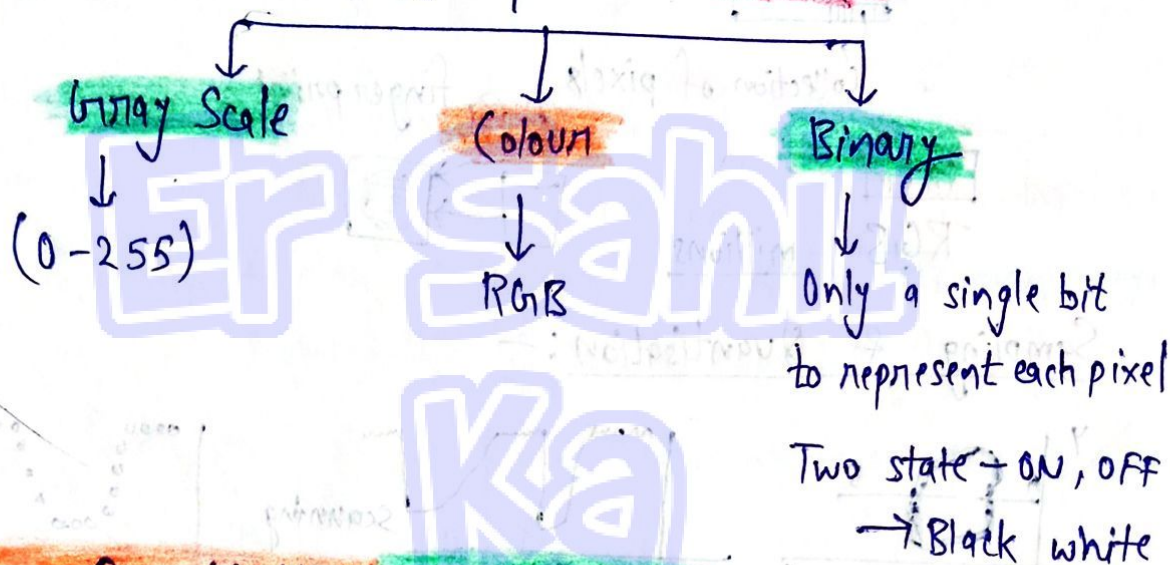 Gray Scale
Colour
Binary
(0-255)
RGB
Only a single bit
to represent each pixel
Two state - ON, OFF
→ Black white
Er Sahil
Ka